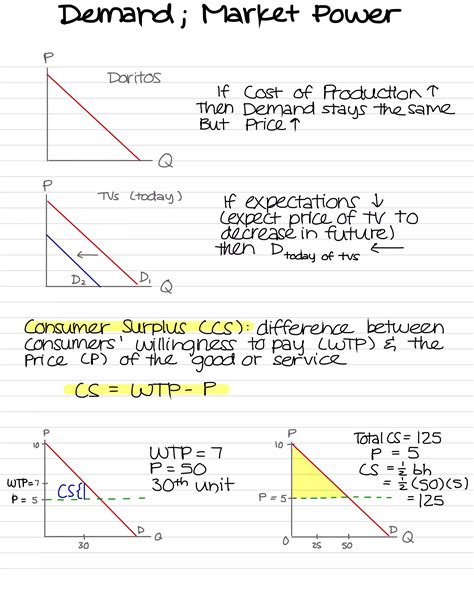 Demand ; Market Power
P
Doritos
Q
If Cost of Production ↑
Then Demand stays the same
But Price ↑
P
TVs (today)
D₂
D₁
Q
If expectations ↓
(expect price of tv to
decrease in future)
then D today of tvs ←
Consumer Surplus (CS): difference between
Consumers' willingness to pay (WTP) & the
Price (P) of the good or service
CS = WTP - P
P
10
WTP=7
P = 5
CS{
30
D
Q
WTP = 7
P = 50
30th unit
P
10
P = 5
0
25
50
D
Q
Total CS = 125
P = 5
CS = ½ bh
= ½ (50)(5)
= 125